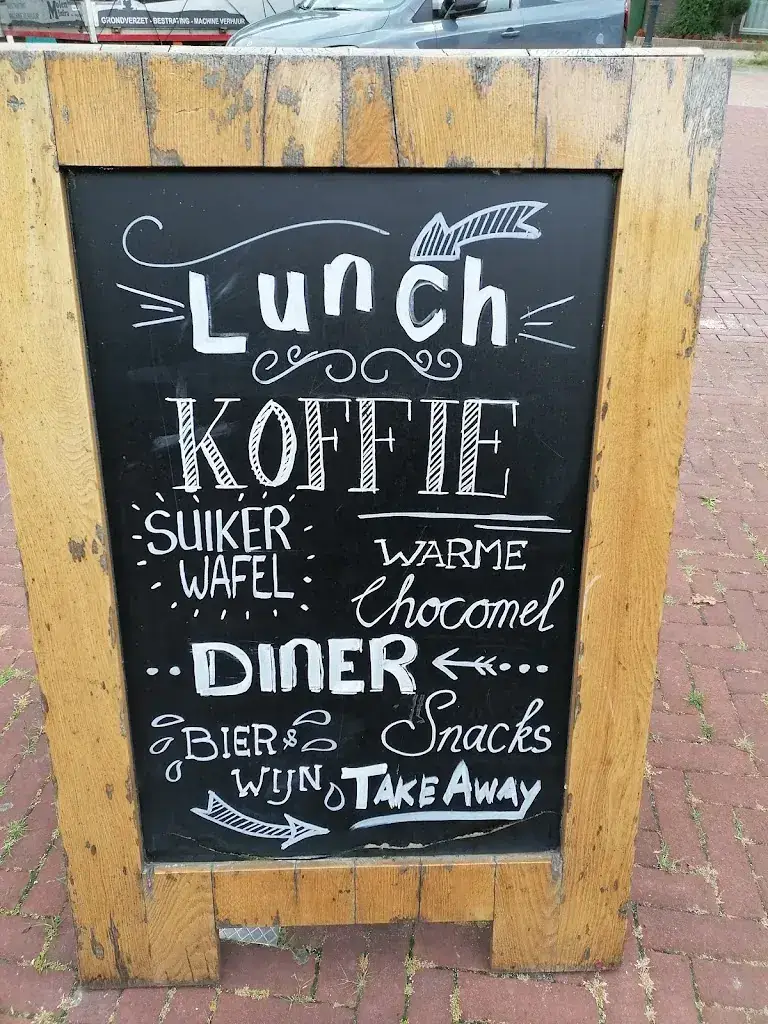 GRONDVERZET - BESTRATING - MACHINE VERHUUR
Lunch
KOFFIE
SUIKER
WAFEL
WARME
Chocomel
DINER
BIER &
WIJN
Snacks
TAKE AWAY